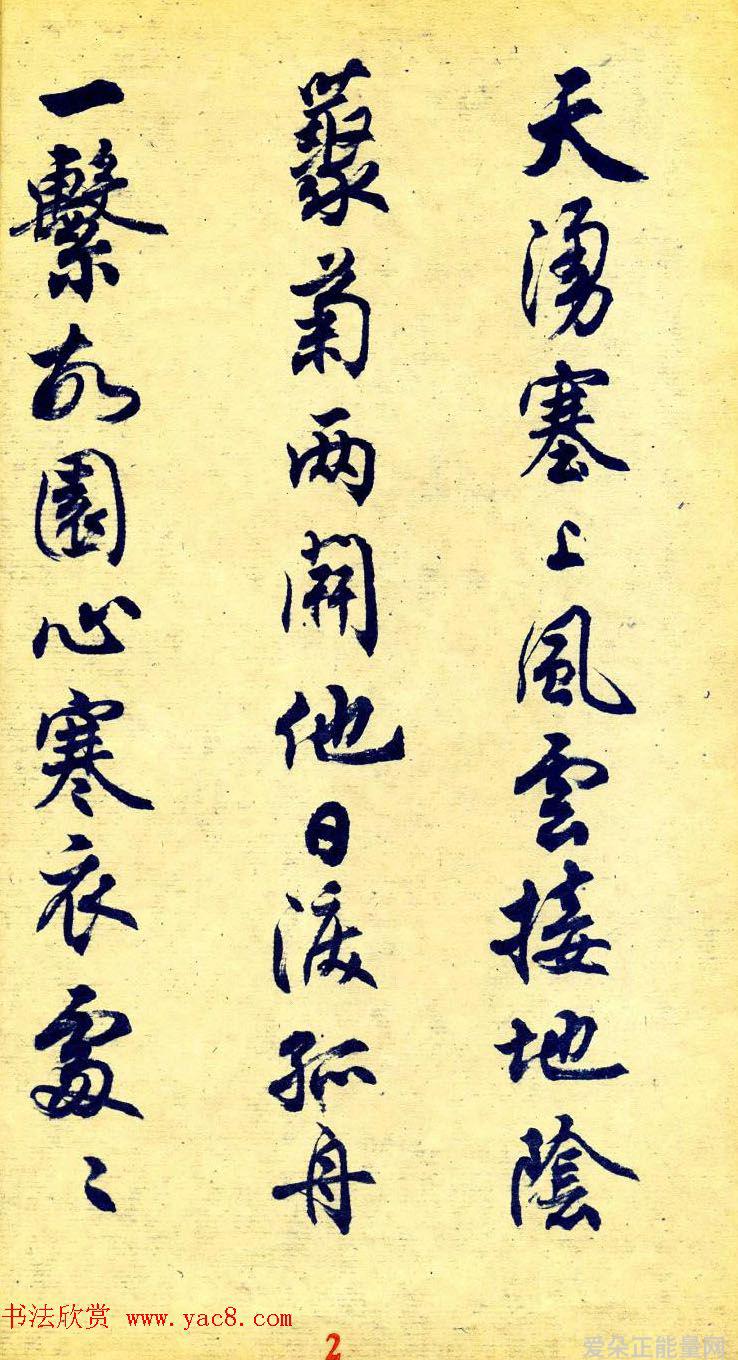 天湧塞上風雲接地陰
藂菊两開他日淚孤舟
一繫故園心寒衣處〻
书法欣赏 www.yac8.com
2
爱朵正能量网